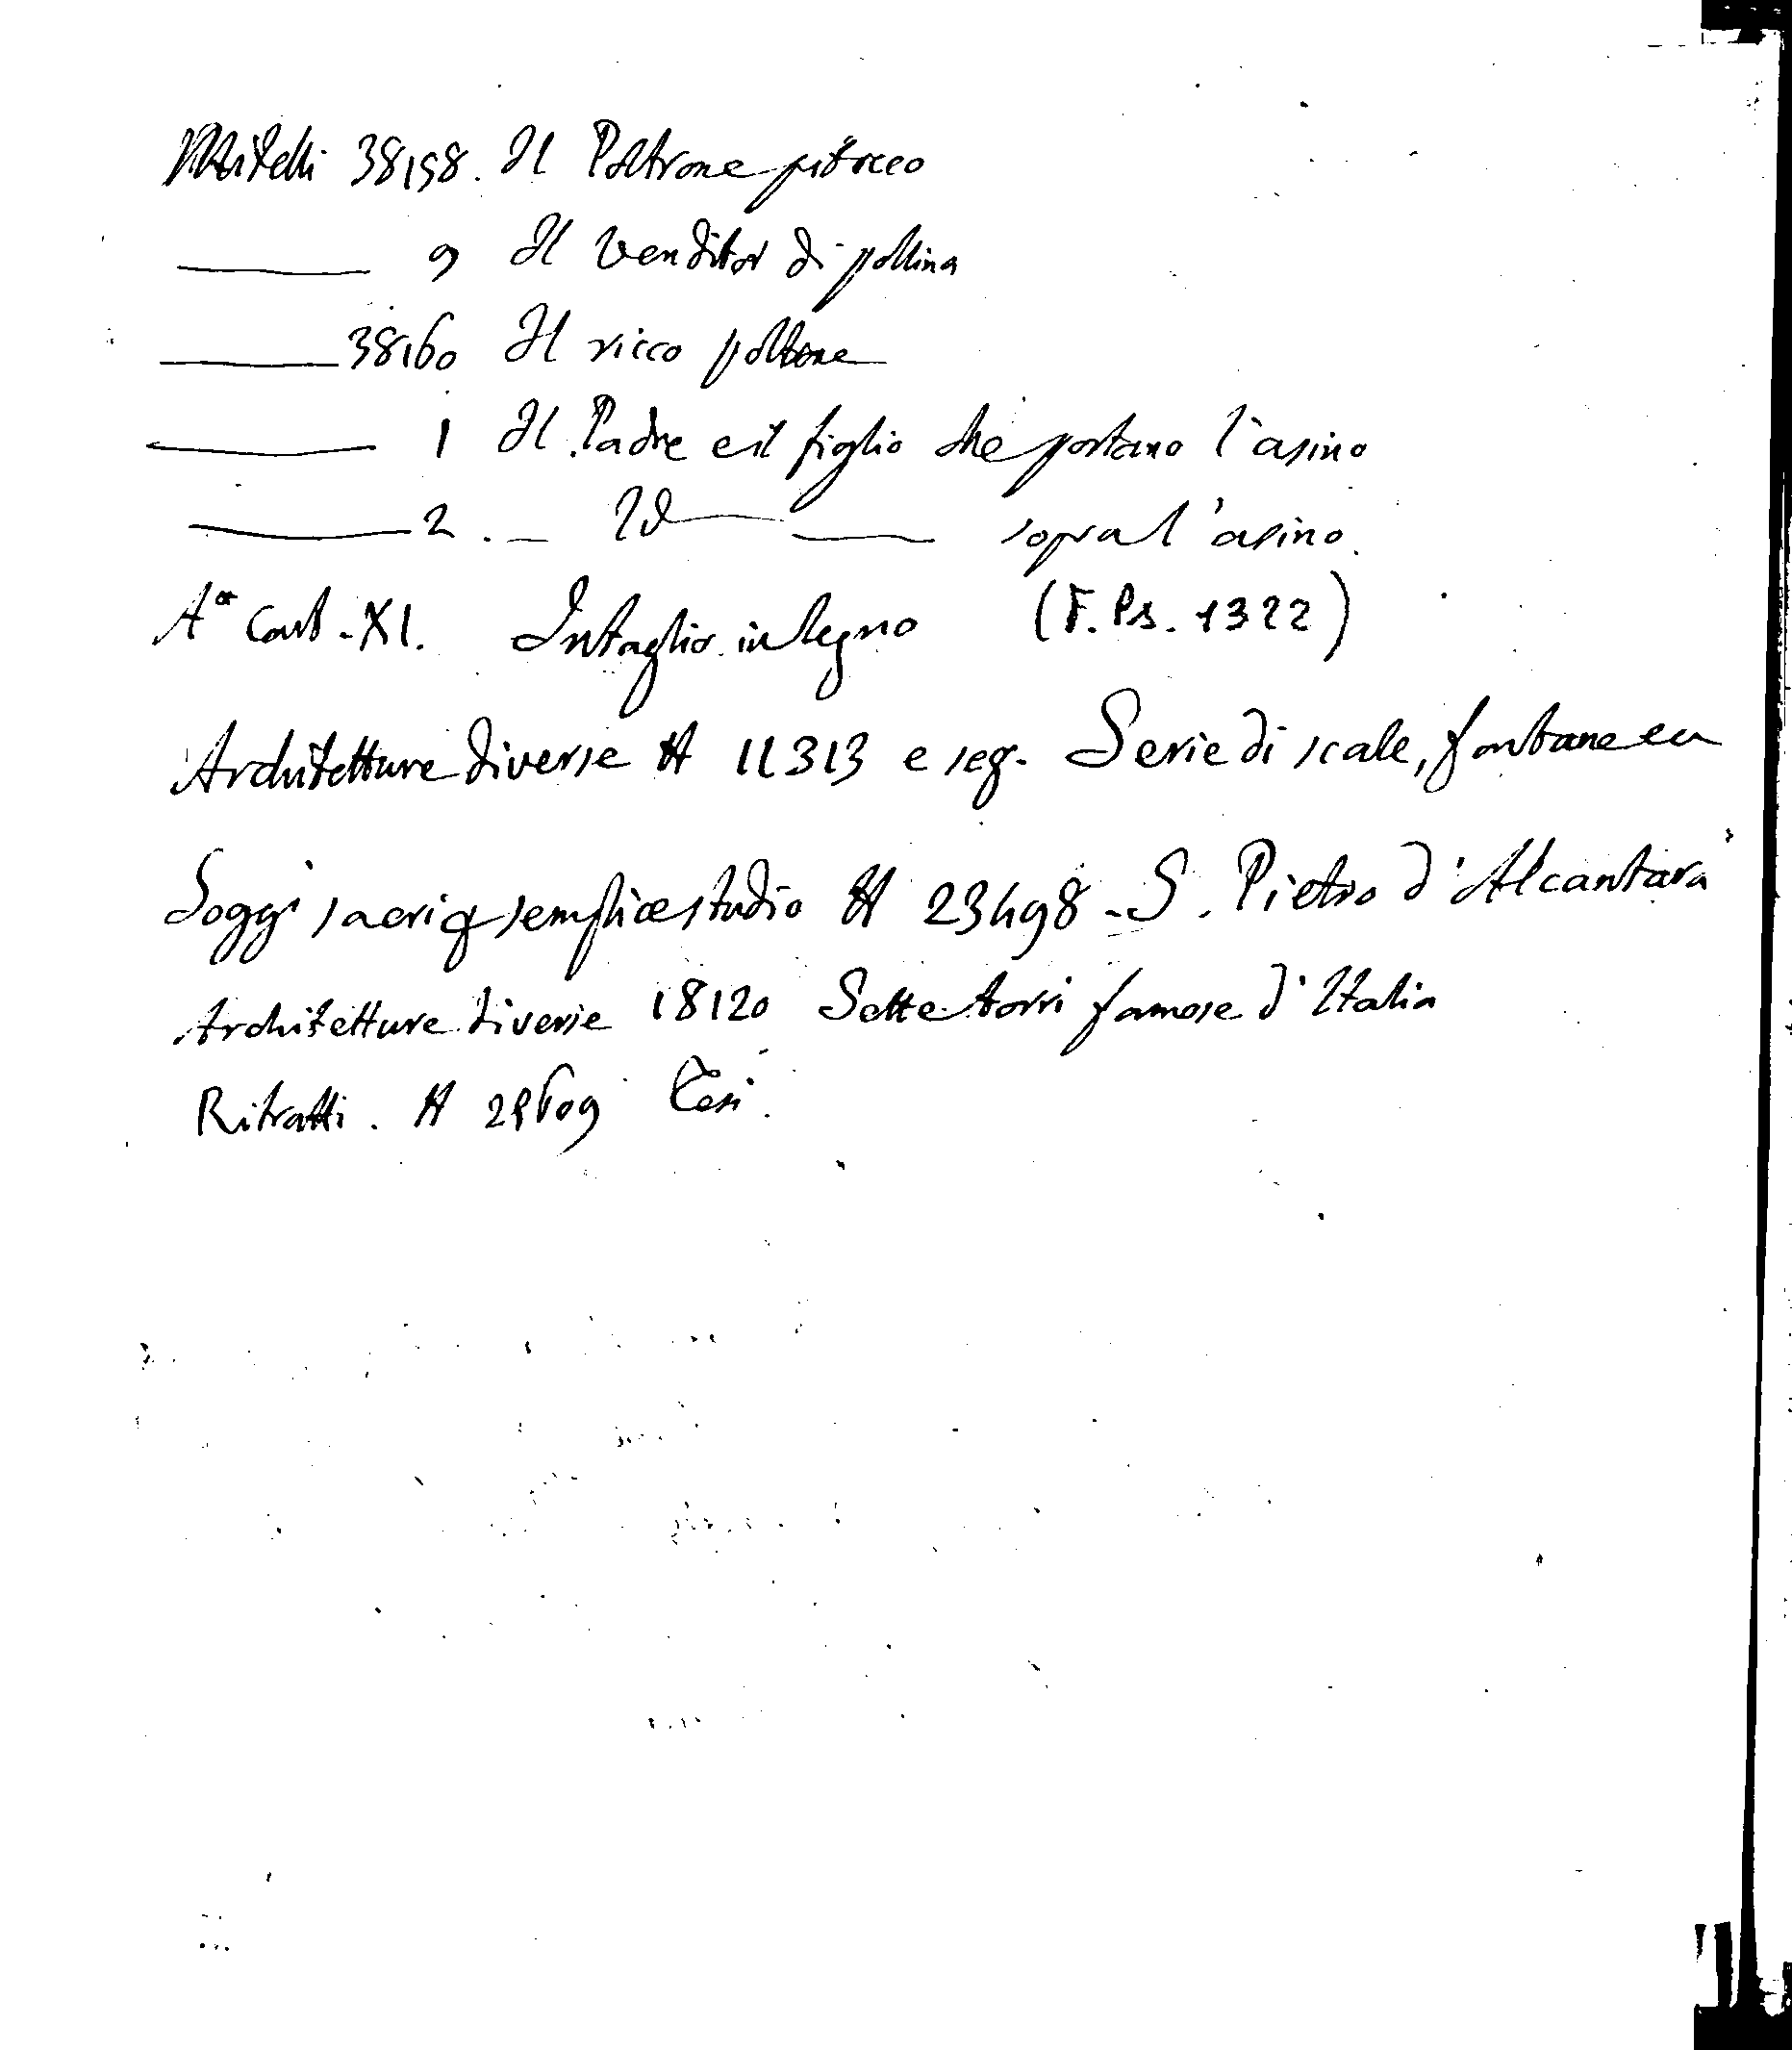 Mitelli 38158. Il Poltrone pitocco
——— 9 Il venditor di pollina
——— 38160 Il ricco poltrone
——— 1 Il Padre e il figlio che portano l'asino
——— 2. — Id —— —— sopra l'asino.
Aª Cart. XI. Intaglio in legno (F. Ps. 1322)
Architetture diverse A 11313 e seg. Serie di scale, fontane ecc
Sogg' sacri semplice studio A 23498 - S. Pietro d'Alcantara
Architetture diverse 18120 Sette torri famose d'Italia
Ritratti. A 29609 Tesi.